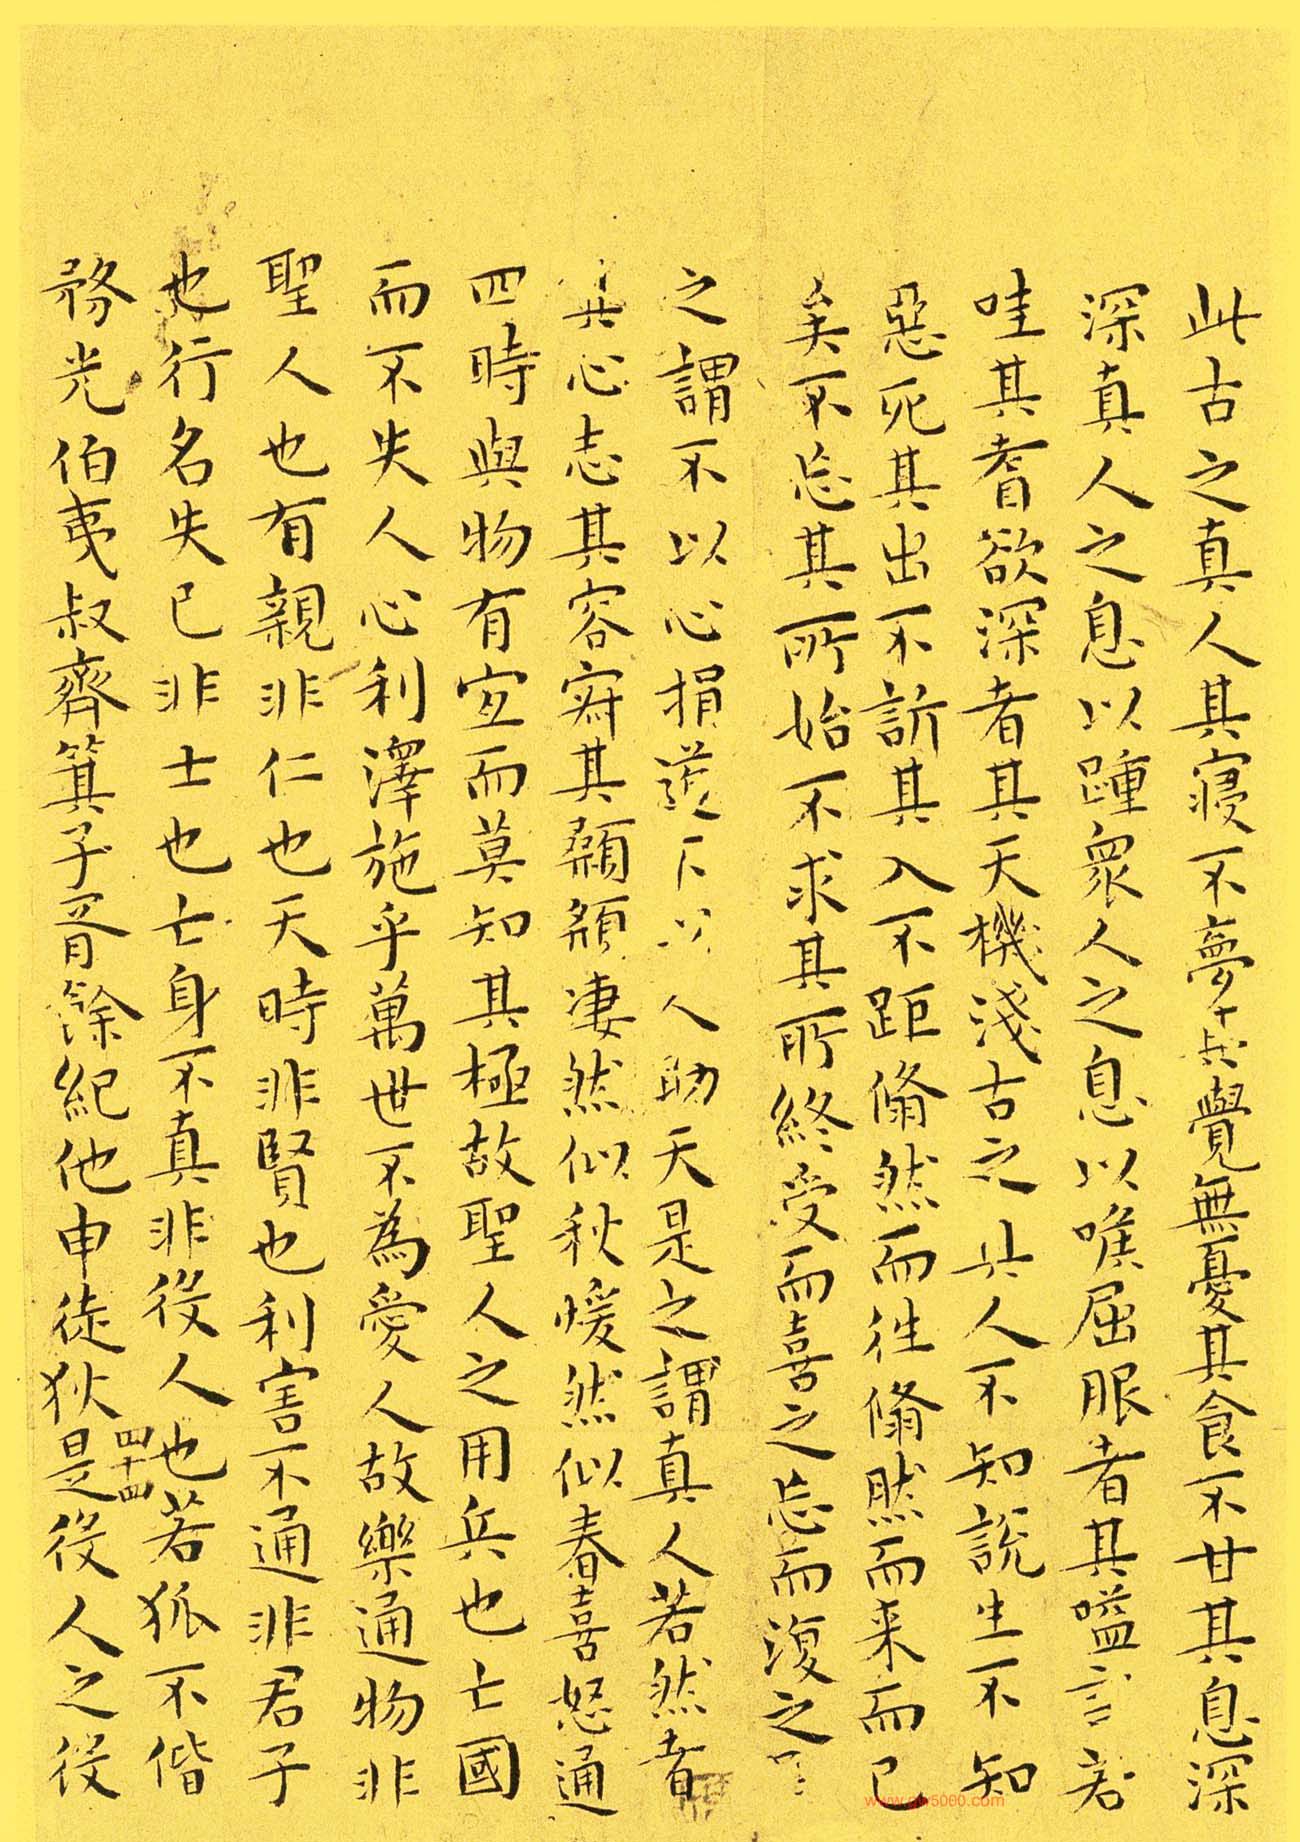 此古之真人其寑不夢其覺無憂其食不甘其息深
深真人之息以踵衆人之息以喉屈服者其嗌言若
哇其耆欲深者其天機淺古之真人不知說生不知
惡死其出不訢其入不距翛然而往翛然而来而已
矣不忘其所始不求其所終受而喜之忘而復之是
之謂不以心捐道不以人助天是之謂真人若然者
其心志其容寂其顙頯凄然似秋煖然似春喜怒通
四時與物有宜而莫知其極故聖人之用兵也亡國
而不失人心利澤施乎萬世不為愛人故樂通物非
聖人也有親非仁也天時非賢也利害不通非君子
也行名失己非士也亡身不真非役人也若狐不偕
務光伯夷叔齊箕子胥餘紀他申徒狄是役人之役
四十四
www.gw5000.com